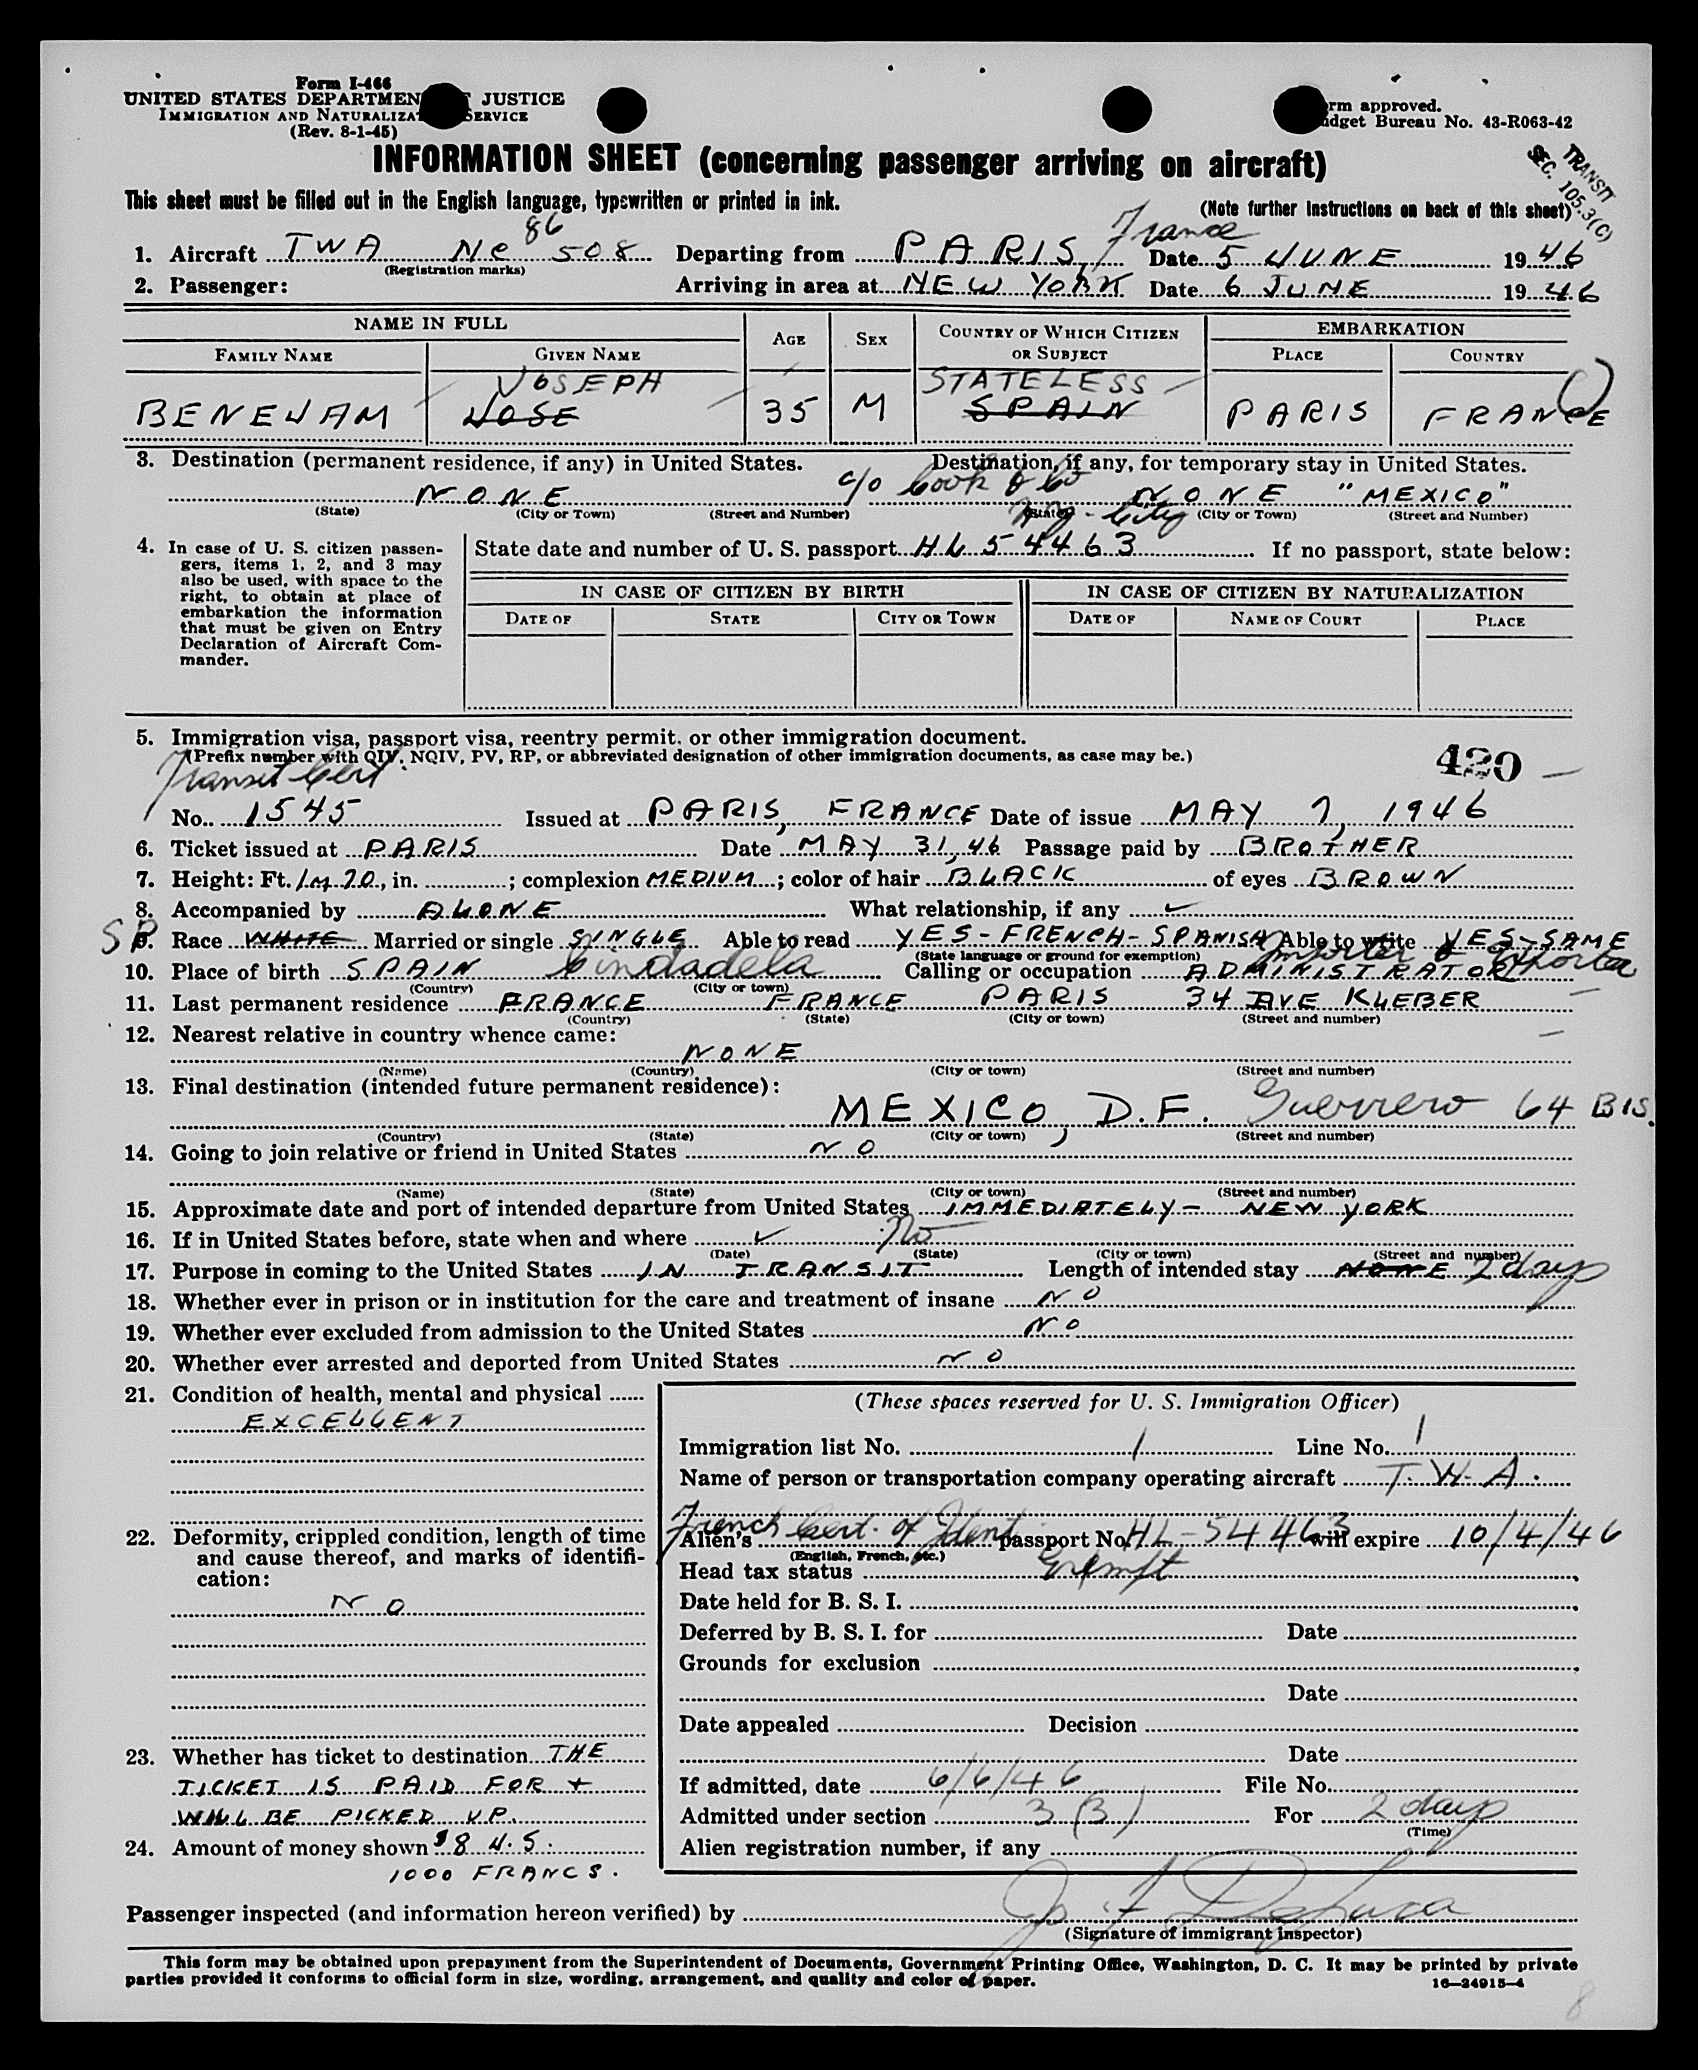 Form I-466
UNITED STATES DEPARTMEN JUSTICE
IMMIGRATION AND NATURALIZAT SERVICE
(Rev. 8-1-45)
rm approved.
dget Bureau No. 43-R063-42
TRANSIT
SEC. 105.3(C)
INFORMATION SHEET (concerning passenger arriving on aircraft)
This sheet must be filled out in the English language, typewritten or printed in ink.
(Note further instructions on back of this sheet)
86
1. Aircraft TWA NC 508 Departing from PARIS, France Date 5 JUNE 1946
(Registration marks)
2. Passenger: Arriving in area at NEW YORK Date 6 JUNE 1946
NAME IN FULL AGE SEX COUNTRY OF WHICH CITIZEN OR SUBJECT EMBARKATION
FAMILY NAME GIVEN NAME PLACE COUNTRY
JOSEPH STATELESS
BENEJAM JOSE 35 M SPAIN PARIS FRANCE
3. Destination (permanent residence, if any) in United States. Destination, if any, for temporary stay in United States.
NONE c/o Cook & Co NONE "MEXICO"
(State) (City or Town) (Street and Number) (State) (City or Town) (Street and Number)
N.Y. - City
4. In case of U. S. citizen passen-
gers, items 1, 2, and 3 may
also be used, with space to the
right, to obtain at place of
embarkation the information
that must be given on Entry
Declaration of Aircraft Com-
mander.
State date and number of U. S. passport HL54463 If no passport, state below:
IN CASE OF CITIZEN BY BIRTH IN CASE OF CITIZEN BY NATURALIZATION
DATE OF STATE CITY OR TOWN DATE OF NAME OF COURT PLACE
5. Immigration visa, passport visa, reentry permit, or other immigration document.
(Prefix number with QIV, NQIV, PV, RP, or abbreviated designation of other immigration documents, as case may be.)
Transit Cert.
420
No. 1545 Issued at PARIS, FRANCE Date of issue MAY 7, 1946
6. Ticket issued at PARIS Date MAY 31, 46 Passage paid by BROTHER
7. Height: Ft. 1m70, in. ; complexion MEDIUM ; color of hair BLACK of eyes BROWN
8. Accompanied by ALONE What relationship, if any
SP
9. Race WHITE Married or single SINGLE Able to read YES-FRENCH-SPANISH Able to write YES-SAME
(State language or ground for exemption)
Importer & Exporter
10. Place of birth SPAIN Ciudadela Calling or occupation ADMINISTRATOR
(Country) (City or town)
11. Last permanent residence FRANCE FRANCE PARIS 34 AVE KLEBER
(Country) (State) (City or town) (Street and number)
12. Nearest relative in country whence came:
NONE
(Name) (Country) (City or town) (Street and number)
13. Final destination (intended future permanent residence):
MEXICO, D.F. Guerrero 64 BIS.
(Country) (State) (City or town) (Street and number)
14. Going to join relative or friend in United States NO
(Name) (State) (City or town) (Street and number)
15. Approximate date and port of intended departure from United States IMMEDIATELY - NEW YORK
16. If in United States before, state when and where No
(Date) (State) (City or town) (Street and number)
17. Purpose in coming to the United States IN TRANSIT Length of intended stay NONE 2 days
18. Whether ever in prison or in institution for the care and treatment of insane NO
19. Whether ever excluded from admission to the United States NO
20. Whether ever arrested and deported from United States NO
21. Condition of health, mental and physical
EXCELLENT
22. Deformity, crippled condition, length of time
and cause thereof, and marks of identifi-
cation:
NO
23. Whether has ticket to destination THE
TICKET IS PAID FOR +
WILL BE PICKED UP.
24. Amount of money shown $8 U.S.
1000 FRANCS.
(These spaces reserved for U. S. Immigration Officer)
Immigration list No. 1 Line No. 1
Name of person or transportation company operating aircraft T.W.A.
Alien's French Cert. of Ident. passport No. HL-54463 will expire 10/4/46
(English, French, etc.)
Head tax status Exempt
Date held for B. S. I.
Deferred by B. S. I. for Date
Grounds for exclusion
Date
Date appealed Decision
Date
If admitted, date 6/6/46 File No.
Admitted under section 3(3) For 2 days
(Time)
Alien registration number, if any
Passenger inspected (and information hereon verified) by
(Signature of immigrant inspector)
This form may be obtained upon prepayment from the Superintendent of Documents, Government Printing Office, Washington, D. C. It may be printed by private
parties provided it conforms to official form in size, wording, arrangement, and quality and color of paper.
16—24915-4
8